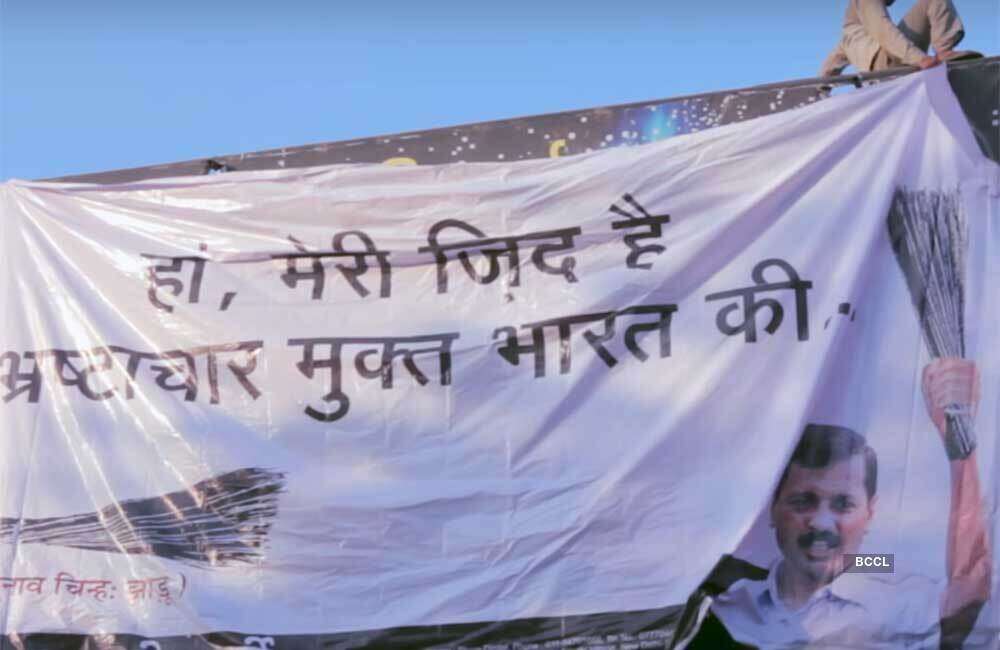 हां, मेरी ज़िद है
भ्रष्टाचार मुक्त भारत की..
नाव चिन्ह: झाड़ू)
BCCL